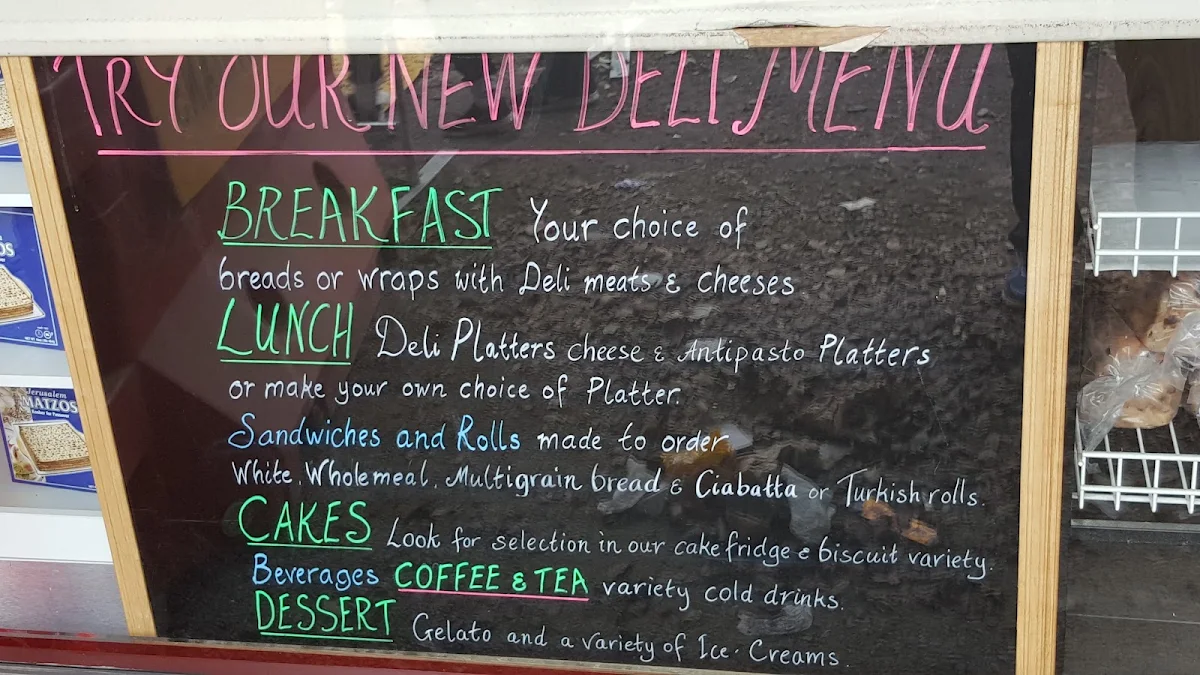 TRY OUR NEW DELI MENU
BREAKFAST Your choice of
breads or wraps with Deli meats & cheeses
LUNCH Deli Platters cheese & Antipasto Platters
or make your own choice of Platter.
Sandwiches and Rolls made to order
White, Wholemeal, Multigrain bread & Ciabatta or Turkish rolls.
CAKES Look for selection in our cake fridge & biscuit variety.
Beverages COFFEE & TEA variety cold drinks.
DESSERT Gelato and a variety of Ice. Creams
Jerusalem
MATZOS